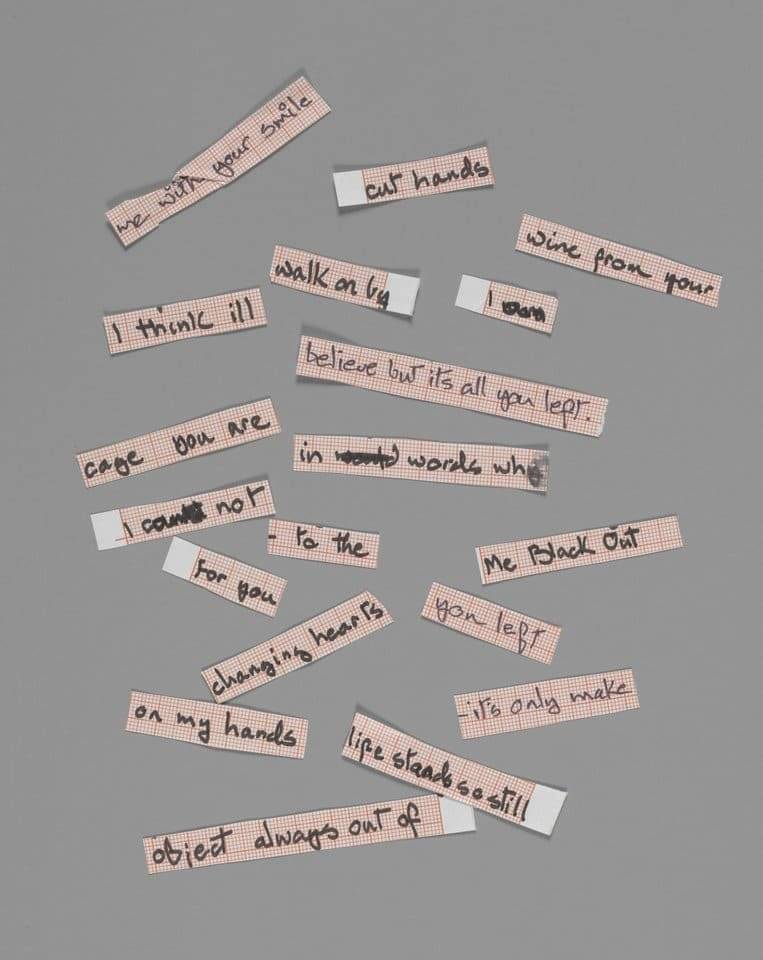 me with your smile
cut hands
wine from your
walk on by
I
I think ill
believe but it's all you left.
cage you are
in words wh
I not
- to the
Me Black Out
For you
you left
changing hearts
- it's only make
on my hands
life stands so still
object always out of